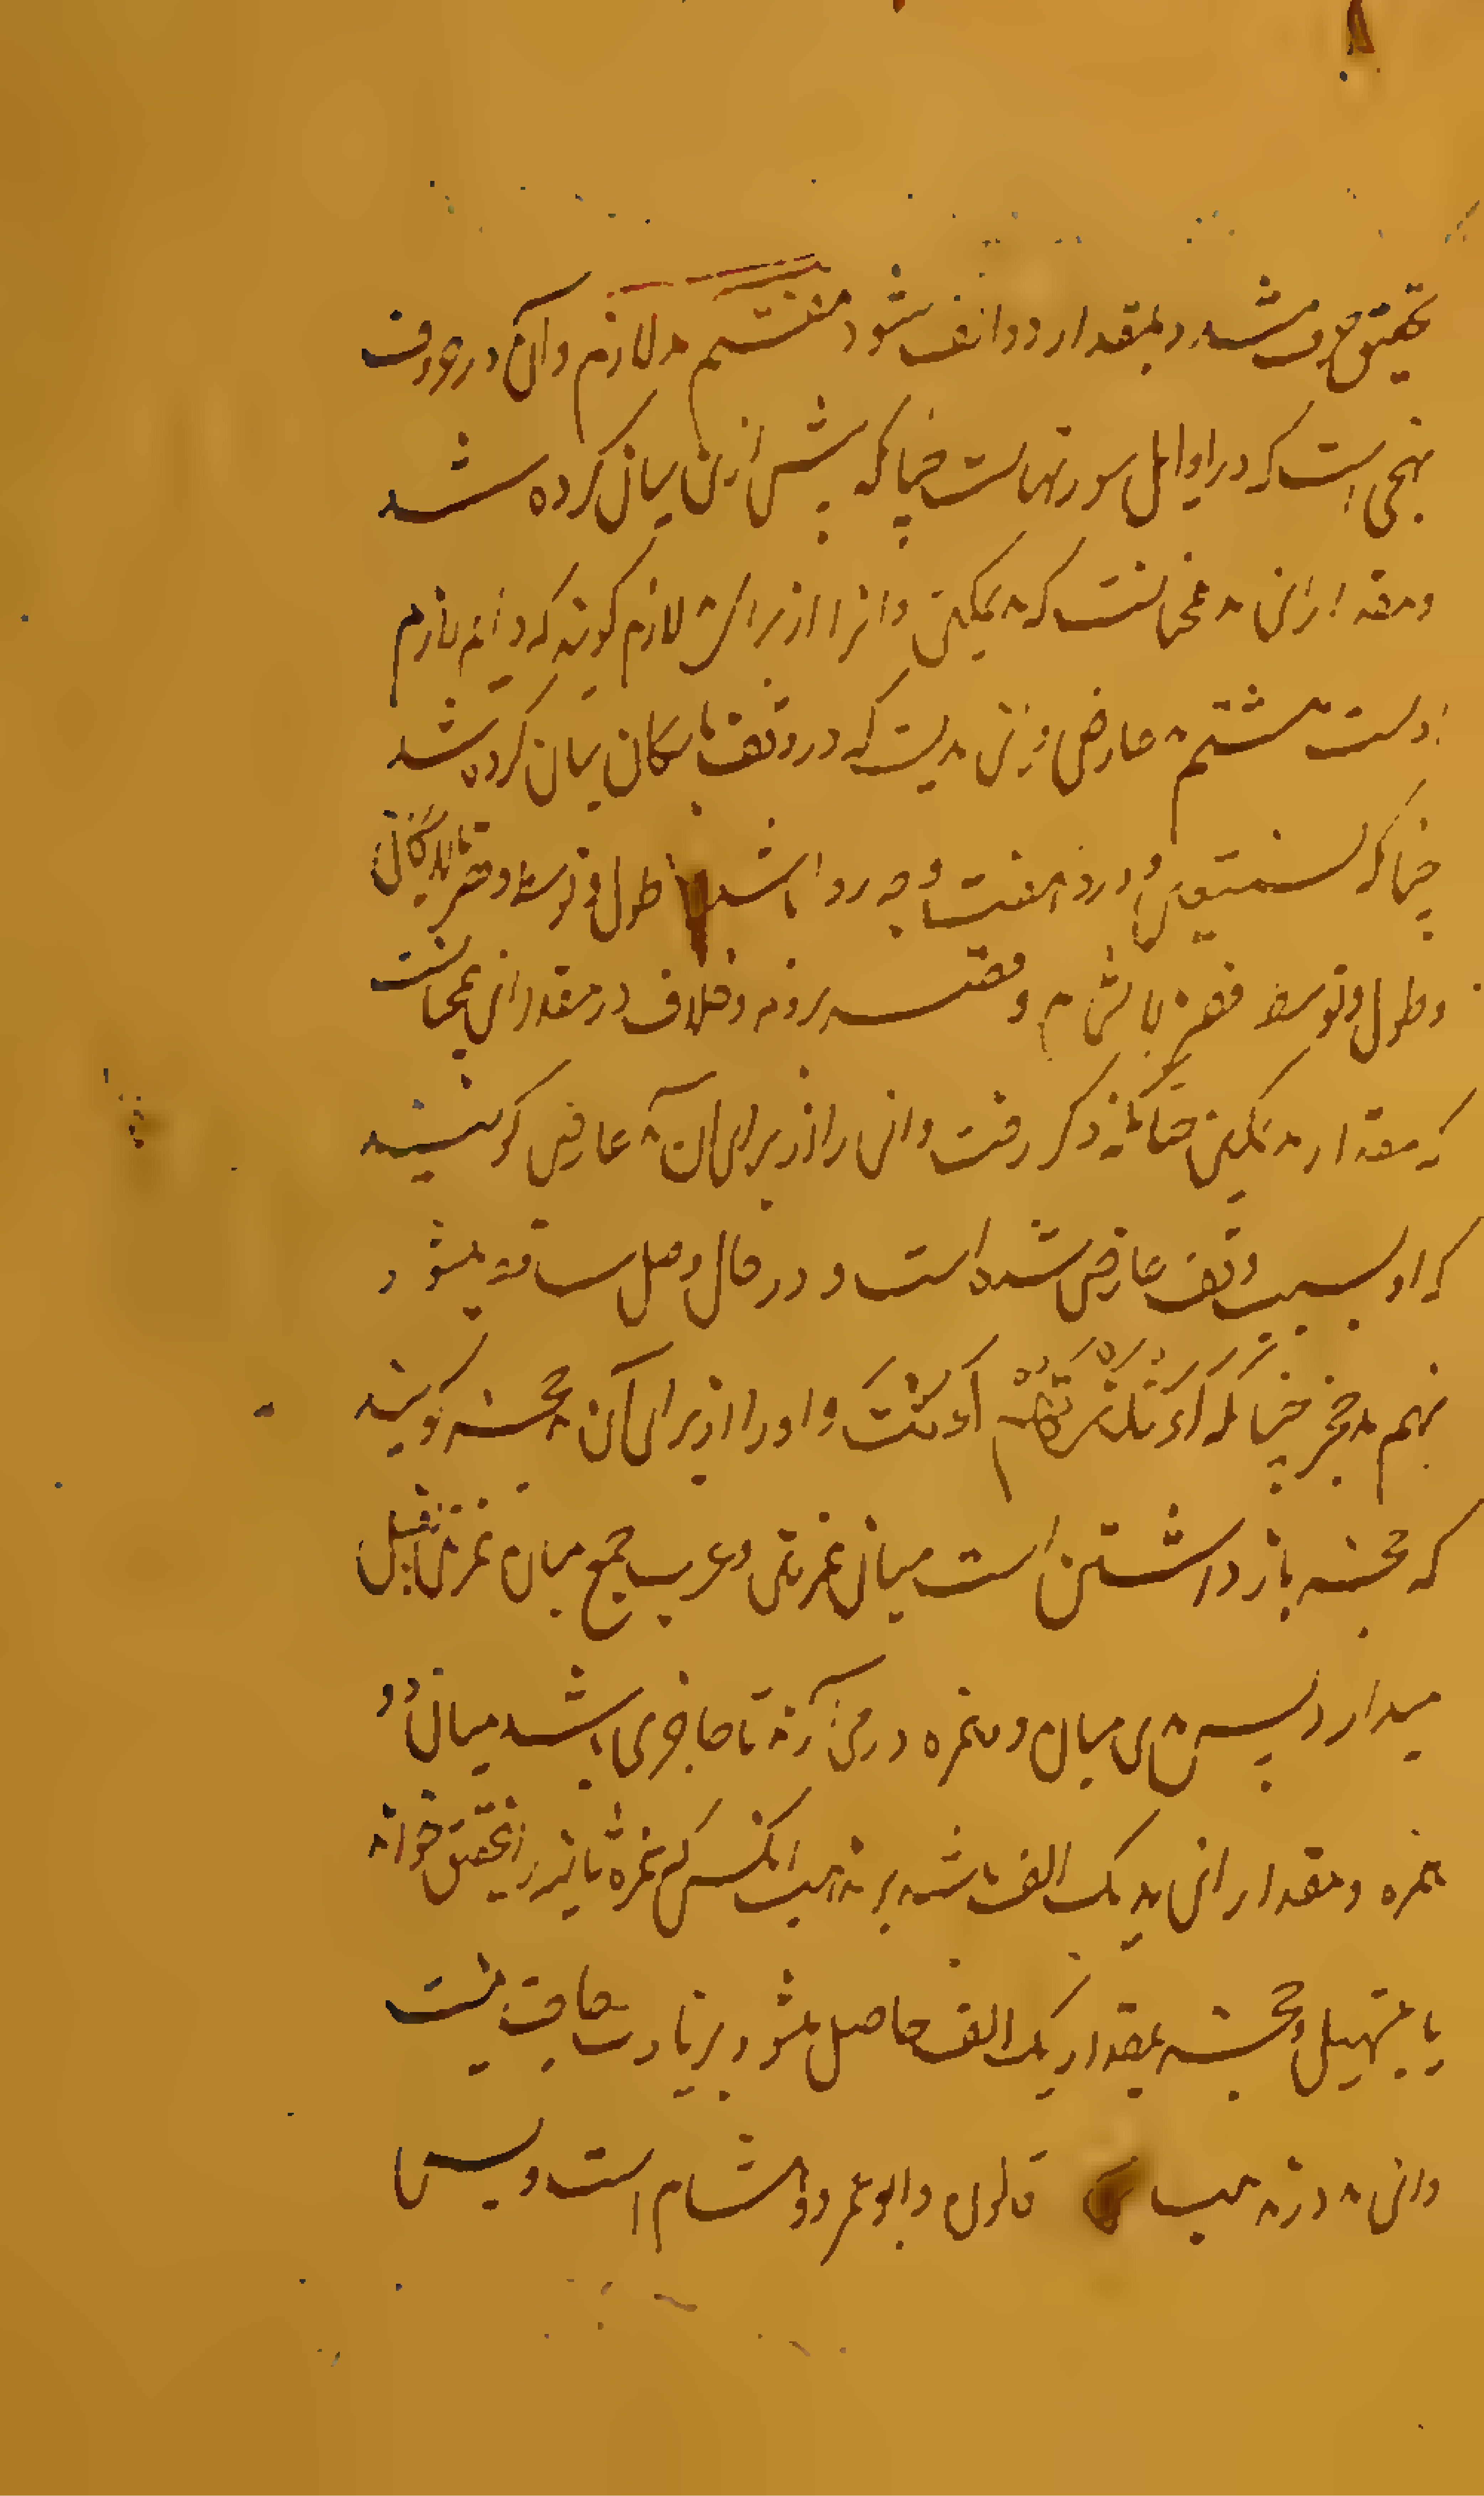 تحقیق حرف مد و بمقدار دو الف شود هفتم مد لازم وآن در حروف
تهجی است که در اوایل سورتهاست چنانکه پیش ازین بیان کرده شد
ومقدار این مد همچنانست که مد تمکین و این را از برای آن لازم گویند که دایم لازم
اوست هشتم مد عارضی و این مدیست که در وقف بر ساکنان بیان کرده شد
چنانکه نستعین و درو هفت وجه روا باشد طول وتوسط وقصر با اسکان
وطول وتوسط وقصر با اشمام وقصر بروم وخلاف در مقدار این همچنانست
که مقدار مد تمکین چنانکه ذکر رفت واین را از برای آن مد عارض گویند
که او بسبب وقف عارض شده است و در حال وصل ساقط میشود
نهم مد حجز چنانکه ءَاَنْذَرْتَهُمْ ءَاَنْتَ واو را از برای آن مد حجز گویند
که حجز باز داشتن است میان همزتین وعرب جمع میان همزتین ثقیل
میدارد پس مدی میان دو همزه در می آرند تا حاجزی باشد میان دو
همزه ومقدار این مد یک الف باشد بر مذهب انکس که همزه ثانیه را بتحقیق خواند
یا بتسهیل وحجز بمقدار یک الف حاصل میشود بزیادت حاجت نیست
واین مد در مذهب قالون وابو عمرو وهشام است وبس